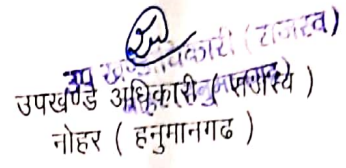 उप खण्ड अधिकारी (राजस्व)
उपखण्ड अधिकारी ( राजस्व )
नोहर ( हनुमानगढ )